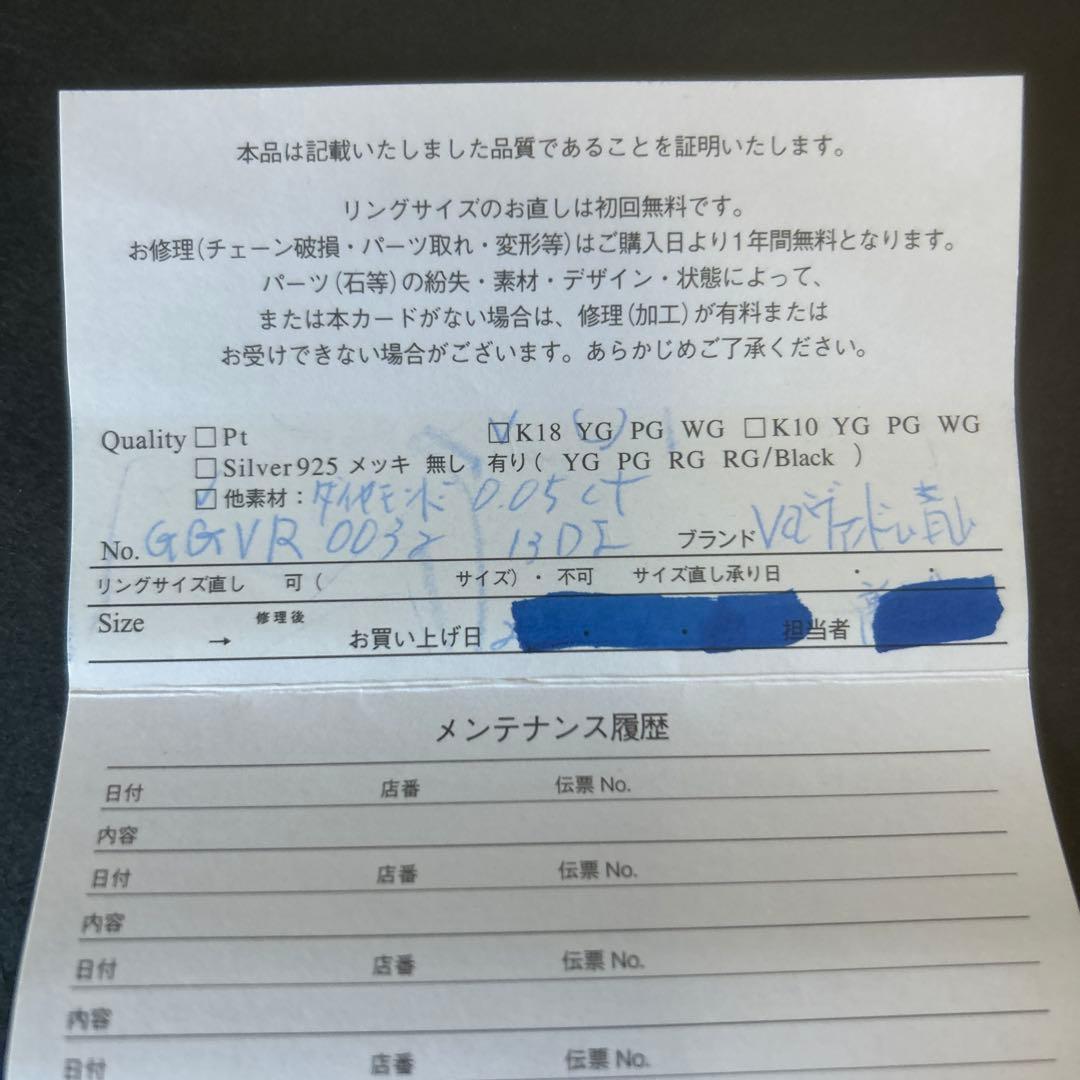 本品は記載いたしました品質であることを証明いたします。
リングサイズのお直しは初回無料です。
お修理(チェーン破損・パーツ取れ・変形等)はご購入日より1年間無料となります。
パーツ(石等)の紛失・素材・デザイン・状態によって、
または本カードがない場合は、修理(加工)が有料または
お受けできない場合がございます。あらかじめご了承ください。
Quality □Pt ☑K18 YG PG WG □K10 YG PG WG
□Silver925 メッキ 無し 有り( YG PG RG RG/Black )
☑他素材：ダイヤモンド 0.05ct
No. GGVR 0032 13DI ブランド
リングサイズ直し 可( サイズ)・不可 サイズ直し承り日 ・ ・
Size → 修理後 お買い上げ日 ・ ・ 担当者
メンテナンス履歴
日付 店番 伝票No.
内容
日付 店番 伝票No.
内容
日付 店番 伝票No.
内容
日付 店番 伝票No.